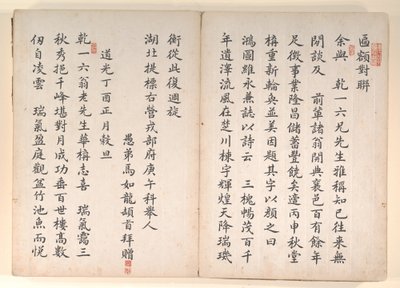 匾額對聯
余與 乾一六兄先生雅稱知已往來無
閒談及 前軍諸翁開典襄邑百有餘年
足徵事業隆昌儲蓄豐饒矣遂丙申秋堂
構重新輪奐並美因題其字以顏之曰
鴻圖維永兼誌以詩云 三槐暢茂百千
年遺澤流風在楚川棟宇輝煌天降瑞璣
衡從此後迴旋
湖北提標右營戎部府庚午科舉人
愚弟馬如龍頓首拜贈
道光丁酉正月穀旦
乾一六翁老先生華構志喜 瑞氣靄三
秋秀挹千峰堪對月成功垂百世樓高數
仞自凌雲 瑞氣盈庭觀盆竹池魚而悅